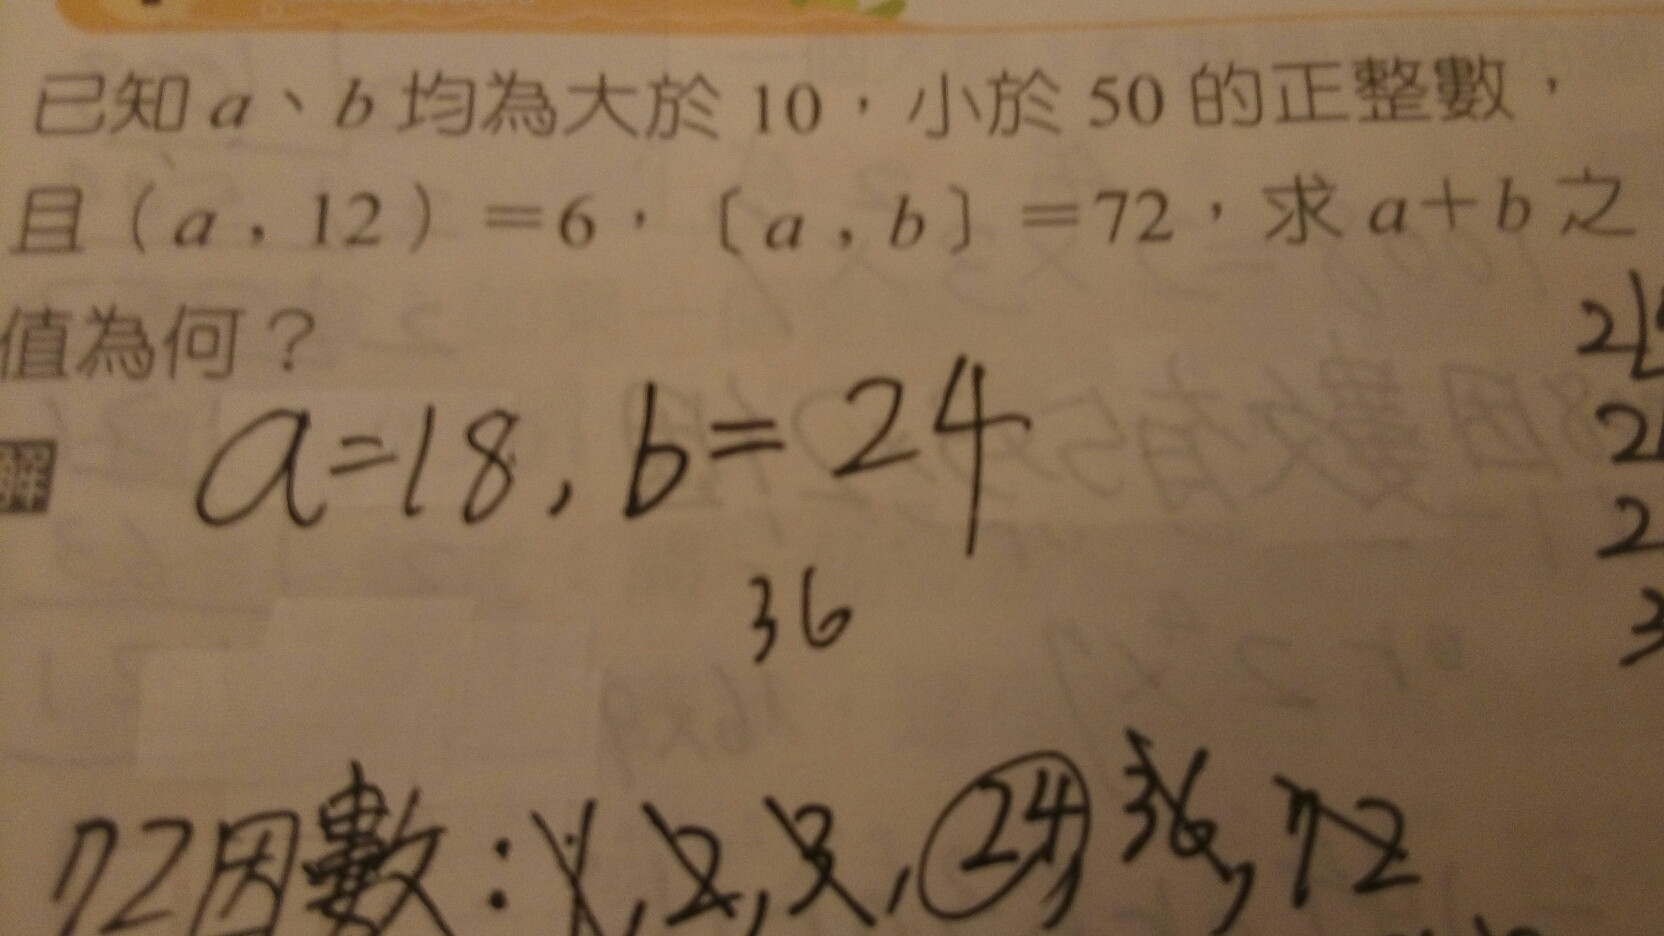 已知 a、b 均為大於 10，小於 50 的正整數，
且（a，12）＝6，〔a，b〕＝72，求 a＋b 之
值為何？
解
a=18, b=24
36
2
2
2
3
72因數：1, 2, 3, 24, 36, 72